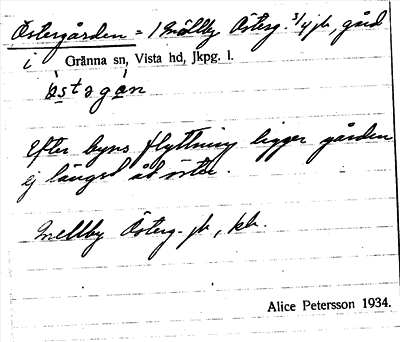 Östergården = 1 Mällby Österg. 3/4 jb, gård
i Gränna sn, Vista hd, Jkpg. l.
östagan
Efter byns flyttning ligger gården
ej längst åt öster.
Mellby Österg. jb, kb.
Alice Petersson 1934.